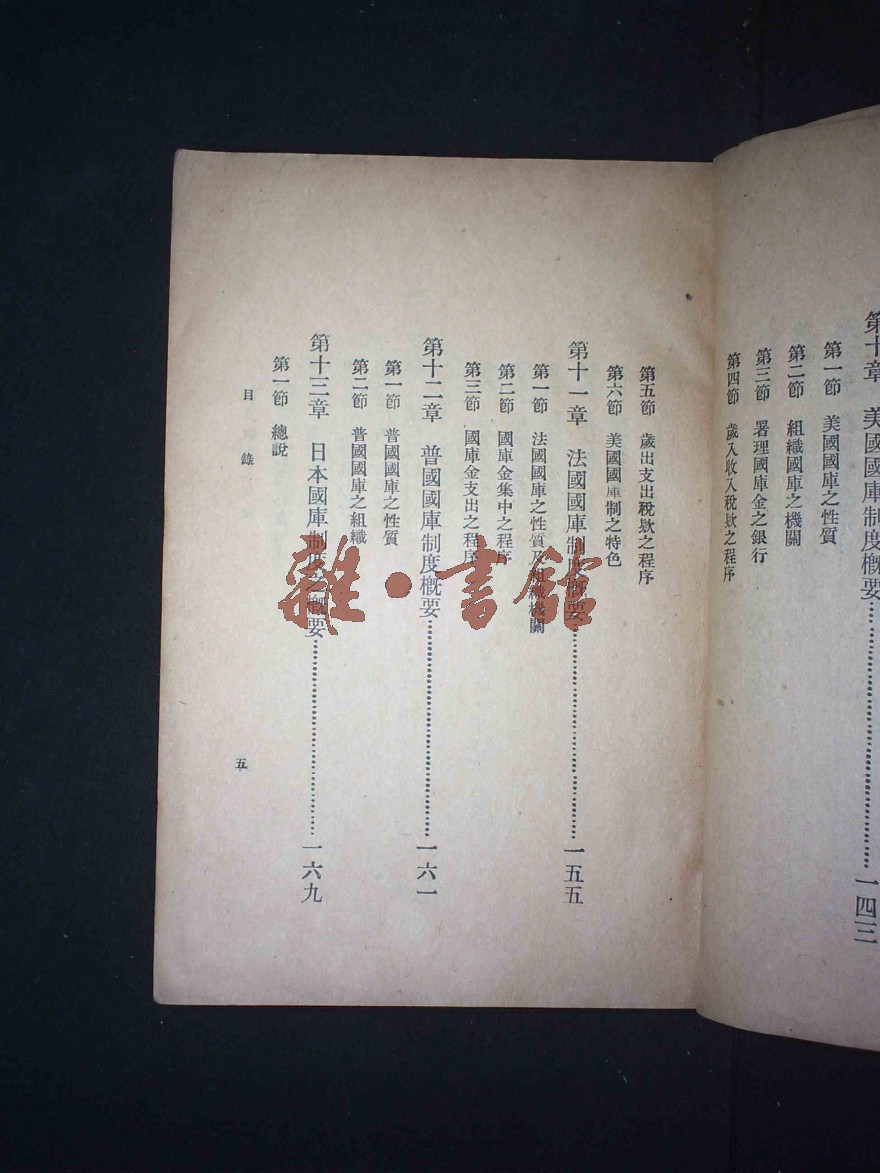 第十章　美國國庫制度概要……一四三
第一節　美國國庫之性質
第二節　組織國庫之機關
第三節　署理國庫金之銀行
第四節　歲入收入稅欵之程序
第五節　歲出支出稅欵之程序
第六節　美國國庫制之特色
第十一章　法國國庫制度概要……一五五
第一節　法國國庫之性質及組織機關
第二節　國庫金集中之程序
第三節　國庫金支出之程序
第十二章　普國國庫制度概要……一六一
第一節　普國國庫之性質
第二節　普國國庫之組織
第十三章　日本國庫制度之概要……一六九
第一節　總說
目錄
五
雜·書館